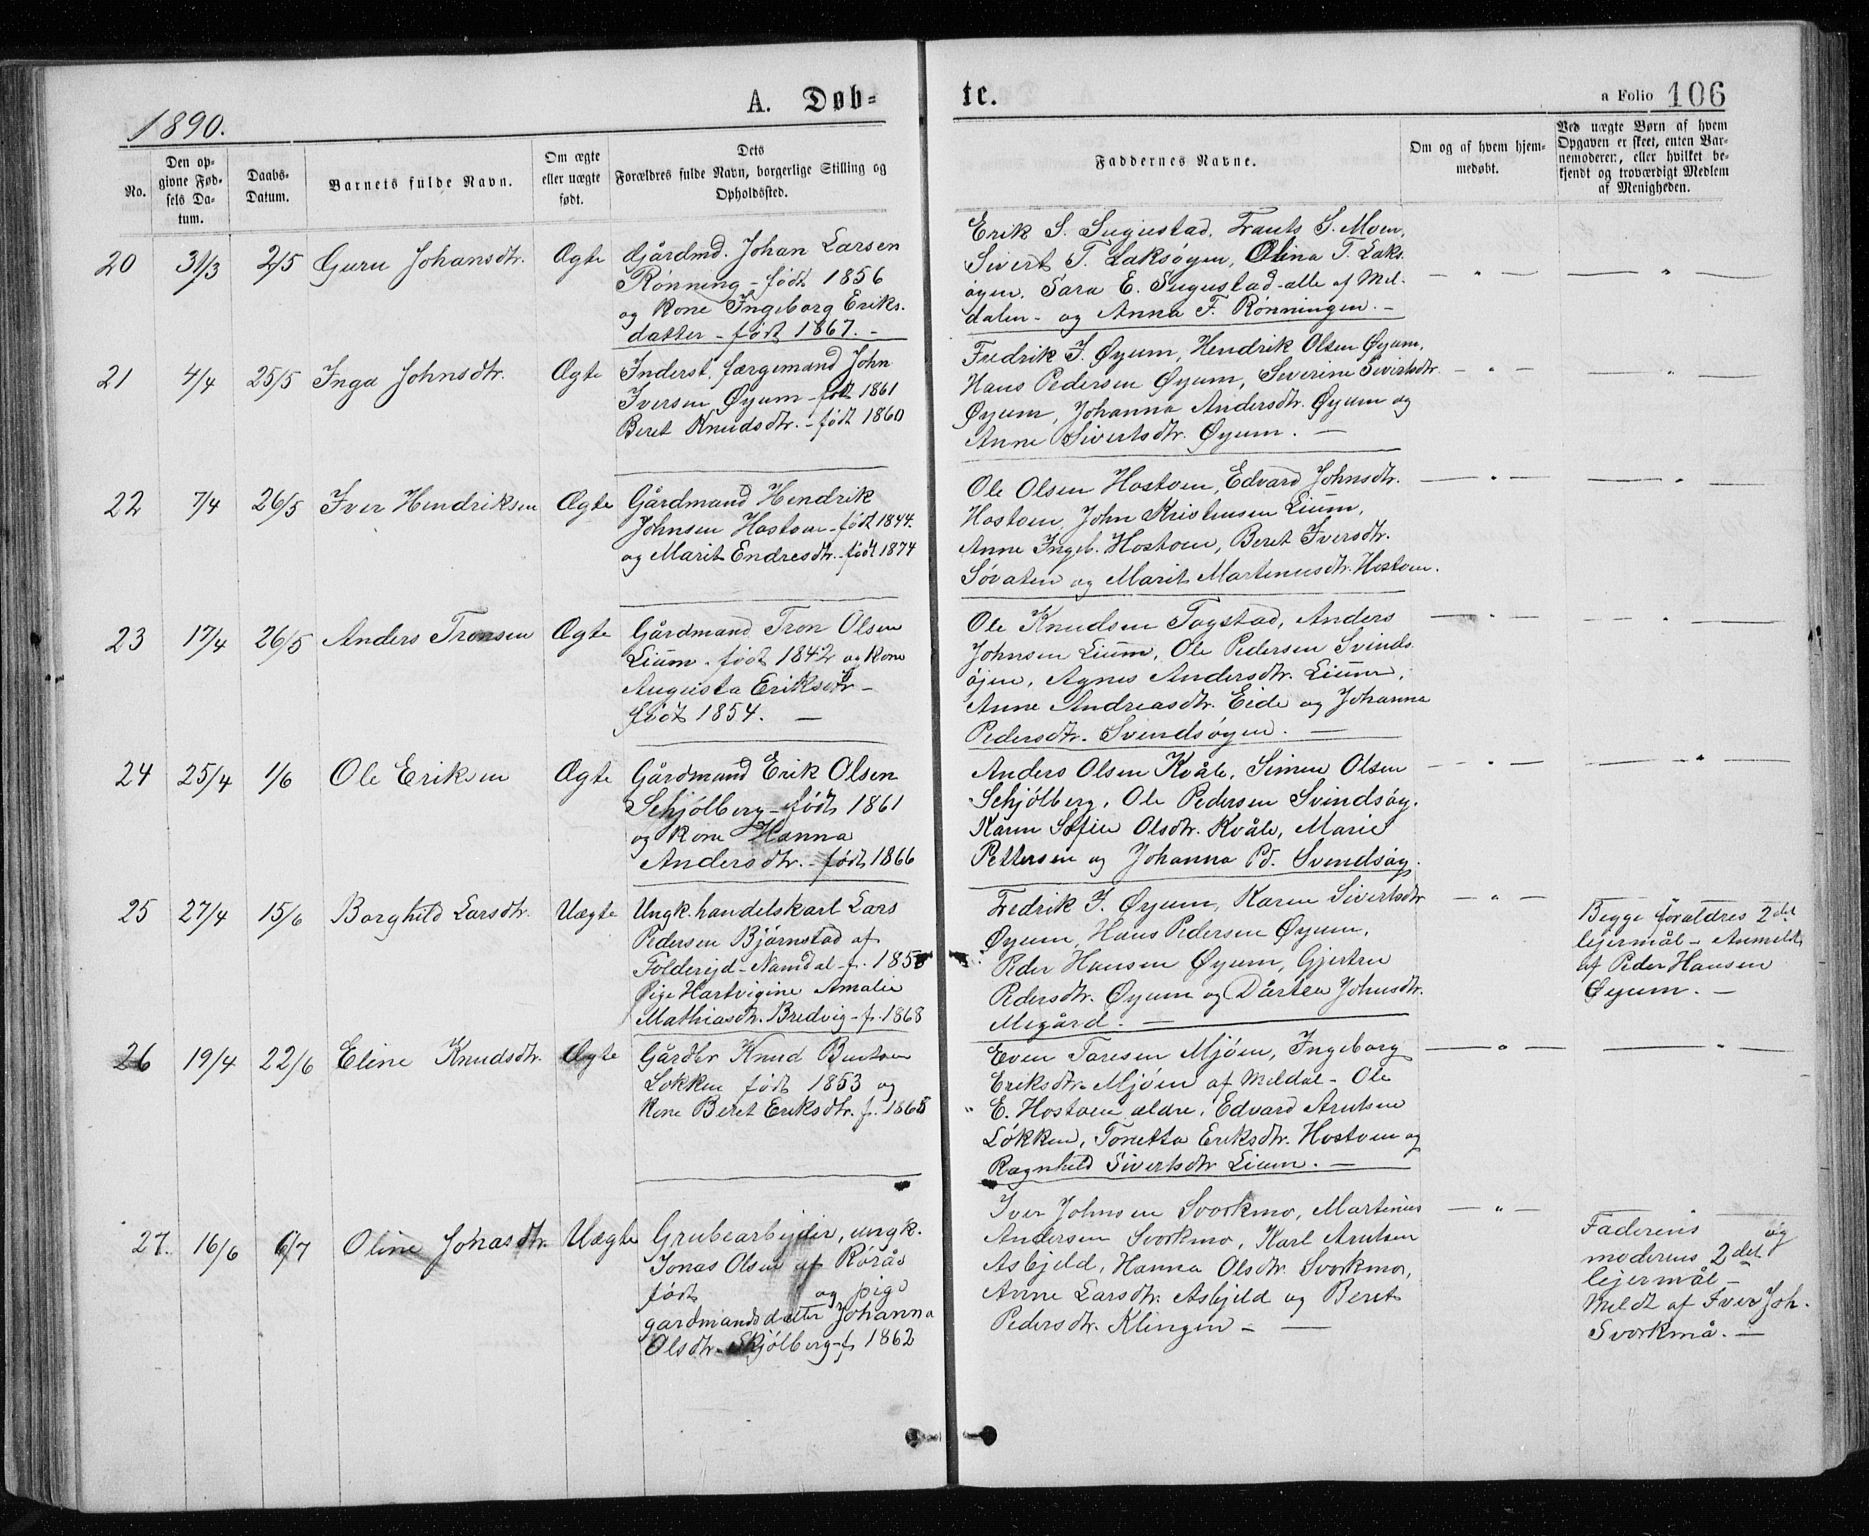 1890.
A. Døb-
te.
a Folio 106
No.
Den op-
givne Fød-
sels Da-
tum.
Daabs-
Datum.
Barnets fulde Navn.
Om ægte
eller uægte
født.
Dets
Forældres fulde Navn, borgerlige Stilling og
Opholdssted.
Faddernes Navne.
Om og af hvem hjem-
medøbt.
Ved uægte Børn af hvem
Opgaven er skeet, enten Bar-
nemoderen, eller hvilket be-
kjendt og troværdigt Medlem
af Menigheden.
20 31/3 2/5 Guru Johansdtr. Ægte
Gårdmd. Johan Larsen
Rønning - født 1856
og kone Ingeborg Eriks-
datter - født 1867. -
Erik S. Sugustad, Frants S. Moen,
Sivert T. Laksøyen, Olina T. Laks-
øyen, Sara E. Sugustad - alle af Mel-
dalen - og Anna F. Rønningen. -
— " —
— " —
21 4/4 25/5 Inga Johnsdtr. Ægte
Inderst. færgemand John
Iversen Øyum - født 1861
Beret Knudsdtr. - født 1860
Fredrik J. Øyum, Hendrik Olsen Øyum,
Hans Pedersen Øyum, Severine Sivertsdtr.
Øyum, Johanna Andersdtr. Øyum og
Anne Sivertsdtr. Øyum. —
— " —
— " —
22 7/4 26/5 Iver Hendriksen Ægte
Gårdmand Hendrik
Johnsen Hostoen - født 1844.
og Marit Endresdtr. - født 1874
Ole Olsen Hostoen, Edvard Johnsdtr.
Hostoen, John Kristensen Lium,
Anne Ingeb. Hostoen, Beret Iversdtr.
Søvaten og Marit Martinusdtr. Hostoen.
— " —
— " —
23 17/4 26/5 Anders Tronsen Ægte
Gårdmand Tron Olsen
Lium - født 1842 og kone
Augusta Eriksdtr -
født 1854. —
Ole Knudsen Togstad, Anders
Johnsen Lium, Ole Pedersen Svinds-
øjen, Agnes Andersdtr. Lium,
Anne Andreasdtr. Eide og Johanna
Pedersdtr. Svendsøyen. —
— " —
— " —
24 25/4 1/6 Ole Eriksen Ægte
Gårdmand Erik Olsen
Schjølberg - født 1861
og kone Hanna
Andersdtr. - født 1866
Anders Olsen Kvåle, Simen Olsen
Schjølberg, Ole Pedersen Svindsøy.
Karen Sofie Olsdtr. Kvåle, Marie
Pettersen og Johanna Pd. Svendsøy.
— " —
— " —
25 27/4 15/6 Borghild Larsdtr. Uægte
Ungk. handelskarl Lars
Pedersen Bjørnstad af
Folderejd - Namdal - f. 185
Pige Hartvigine Amalie
Mathiasdtr. Bredvig - f. 1868
Fredrik J. Øyum, Karen Sivertsdtr
Øyum, Hans Pedersen Øyum,
Peder Hansen Øyum, Gjertru
Pedersdtr. Øyum og Dårtea Johnsdtr.
Megård. —
— " —
Begge foraldres 2det
lejermål - Anmeldt
af Peder Hansen
Øyum. —
26 19/4 22/6 Eline Knudsdtr. Ægte
Gårdbr Knud Bentsen
Løkken født 1853 og
kone Beret Eriksdtr. f. 1868
Even Toresen Mjøen, Ingeborg
Eriksdtr. Mjøen af Meldal - Ole
E. Hostoen ældre, Edvard Arntsen
Løkken, Tonetta Eriksdtr. Hostoen og
Ragnhild Sivertsdtr Lium. —
— " —
— " —
27. 16/6 6/7 Oline Jonasdtr. Uægte
Grubearbejder, ungk.
Jonas Olsen af Rørås
født og pige
gardmandsdatter Johanna
Olsdtr. Skjølberg - f 1862
Iver Johnsen Svorkmo, Martinus
Andersen Svorkmo, Karl Arntsen
Asbjeld, Hanna Olsdtr. Svorkmo,
Anne Larsdtr. Asbjeld og Beret
Pedersdtr. Klingen - —
— " —
Faderens og
moderens 2det
lejermål -
Meldt af Iver Joh.
Svorkmå. —